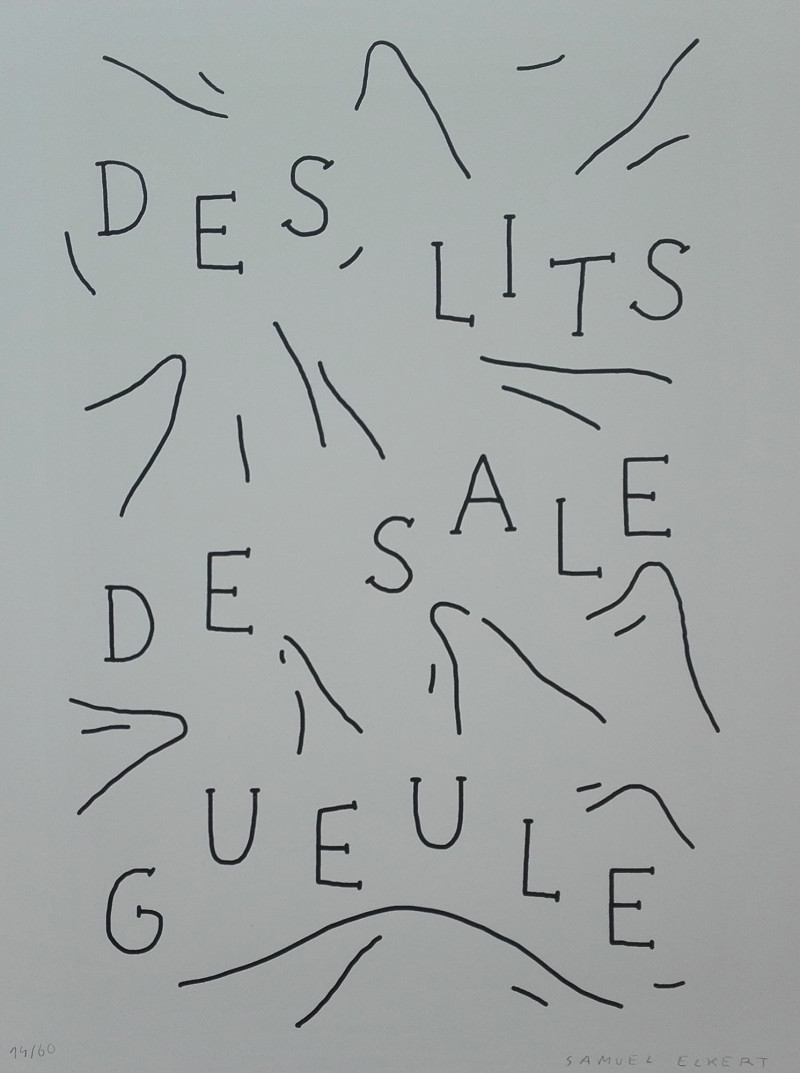 DES LITS
DE SALE
GUEULE
14/60
SAMUEL ECKERT